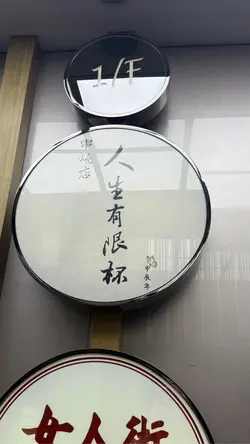 1/F
人生有限杯
串燒店
甲辰年
女人街